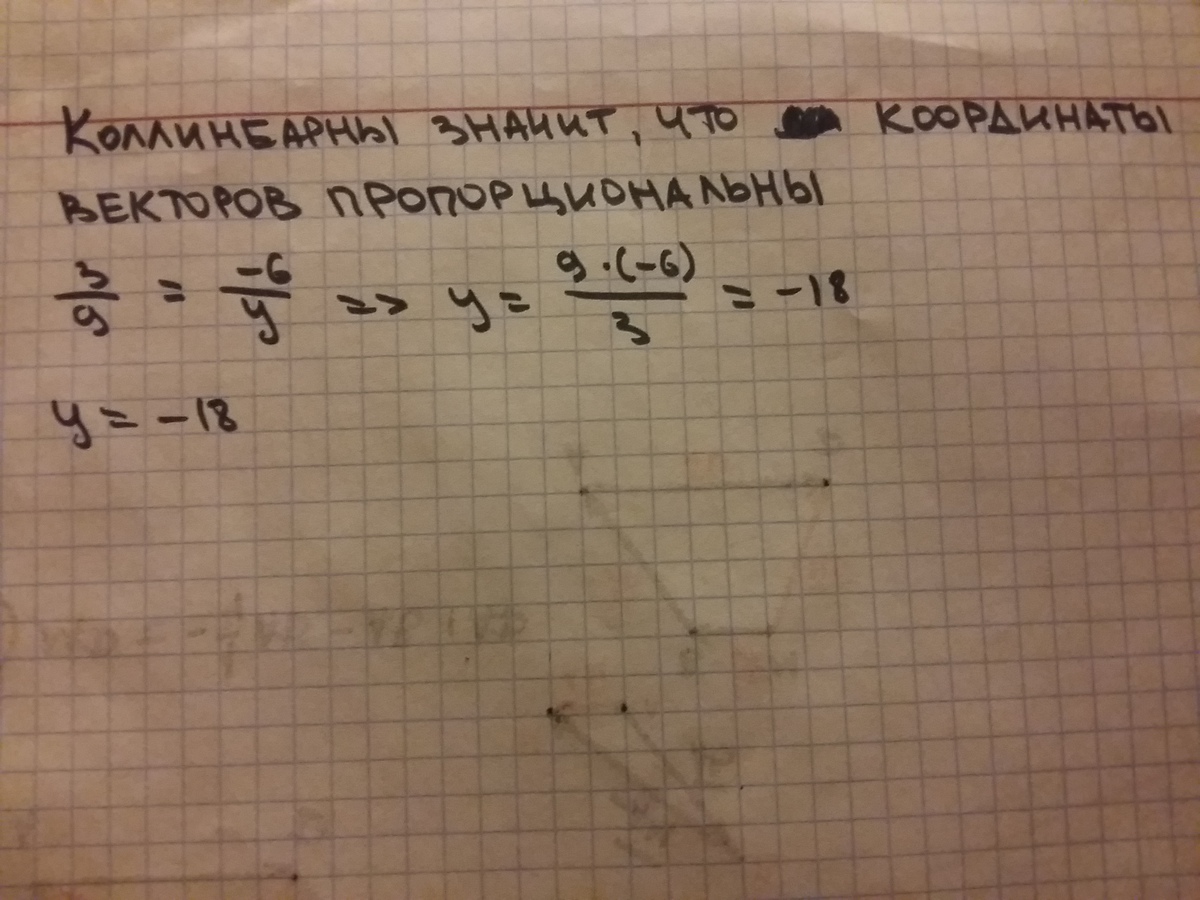 КОЛЛИНБАРНЫ ЗНАЧИТ, ЧТО КООРДИНАТЫ
ВЕКТОРОВ ПРОПОРЦИОНАЛЬНЫ
3/9 = -6/y => y = 9·(-6)/3 = -18
y = -18